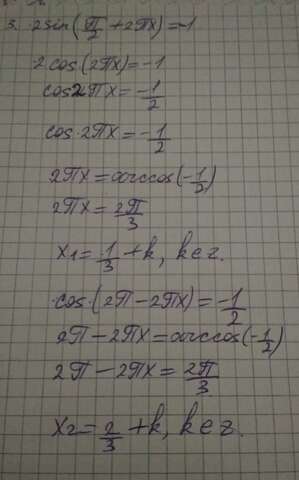 3. 2sin(π/2 + 2πx) = -1
2cos(2πx) = -1
cos2πx = -1/2
cos·2πx = -1/2
2πx = arccos(-1/2)
2πx = 2π/3
x₁ = 1/3 + k, k∈z.
cos·(2π - 2πx) = -1/2
2π - 2πx = arccos(-1/2)
2π - 2πx = 2π/3
x₂ = 2/3 + k, k∈z.